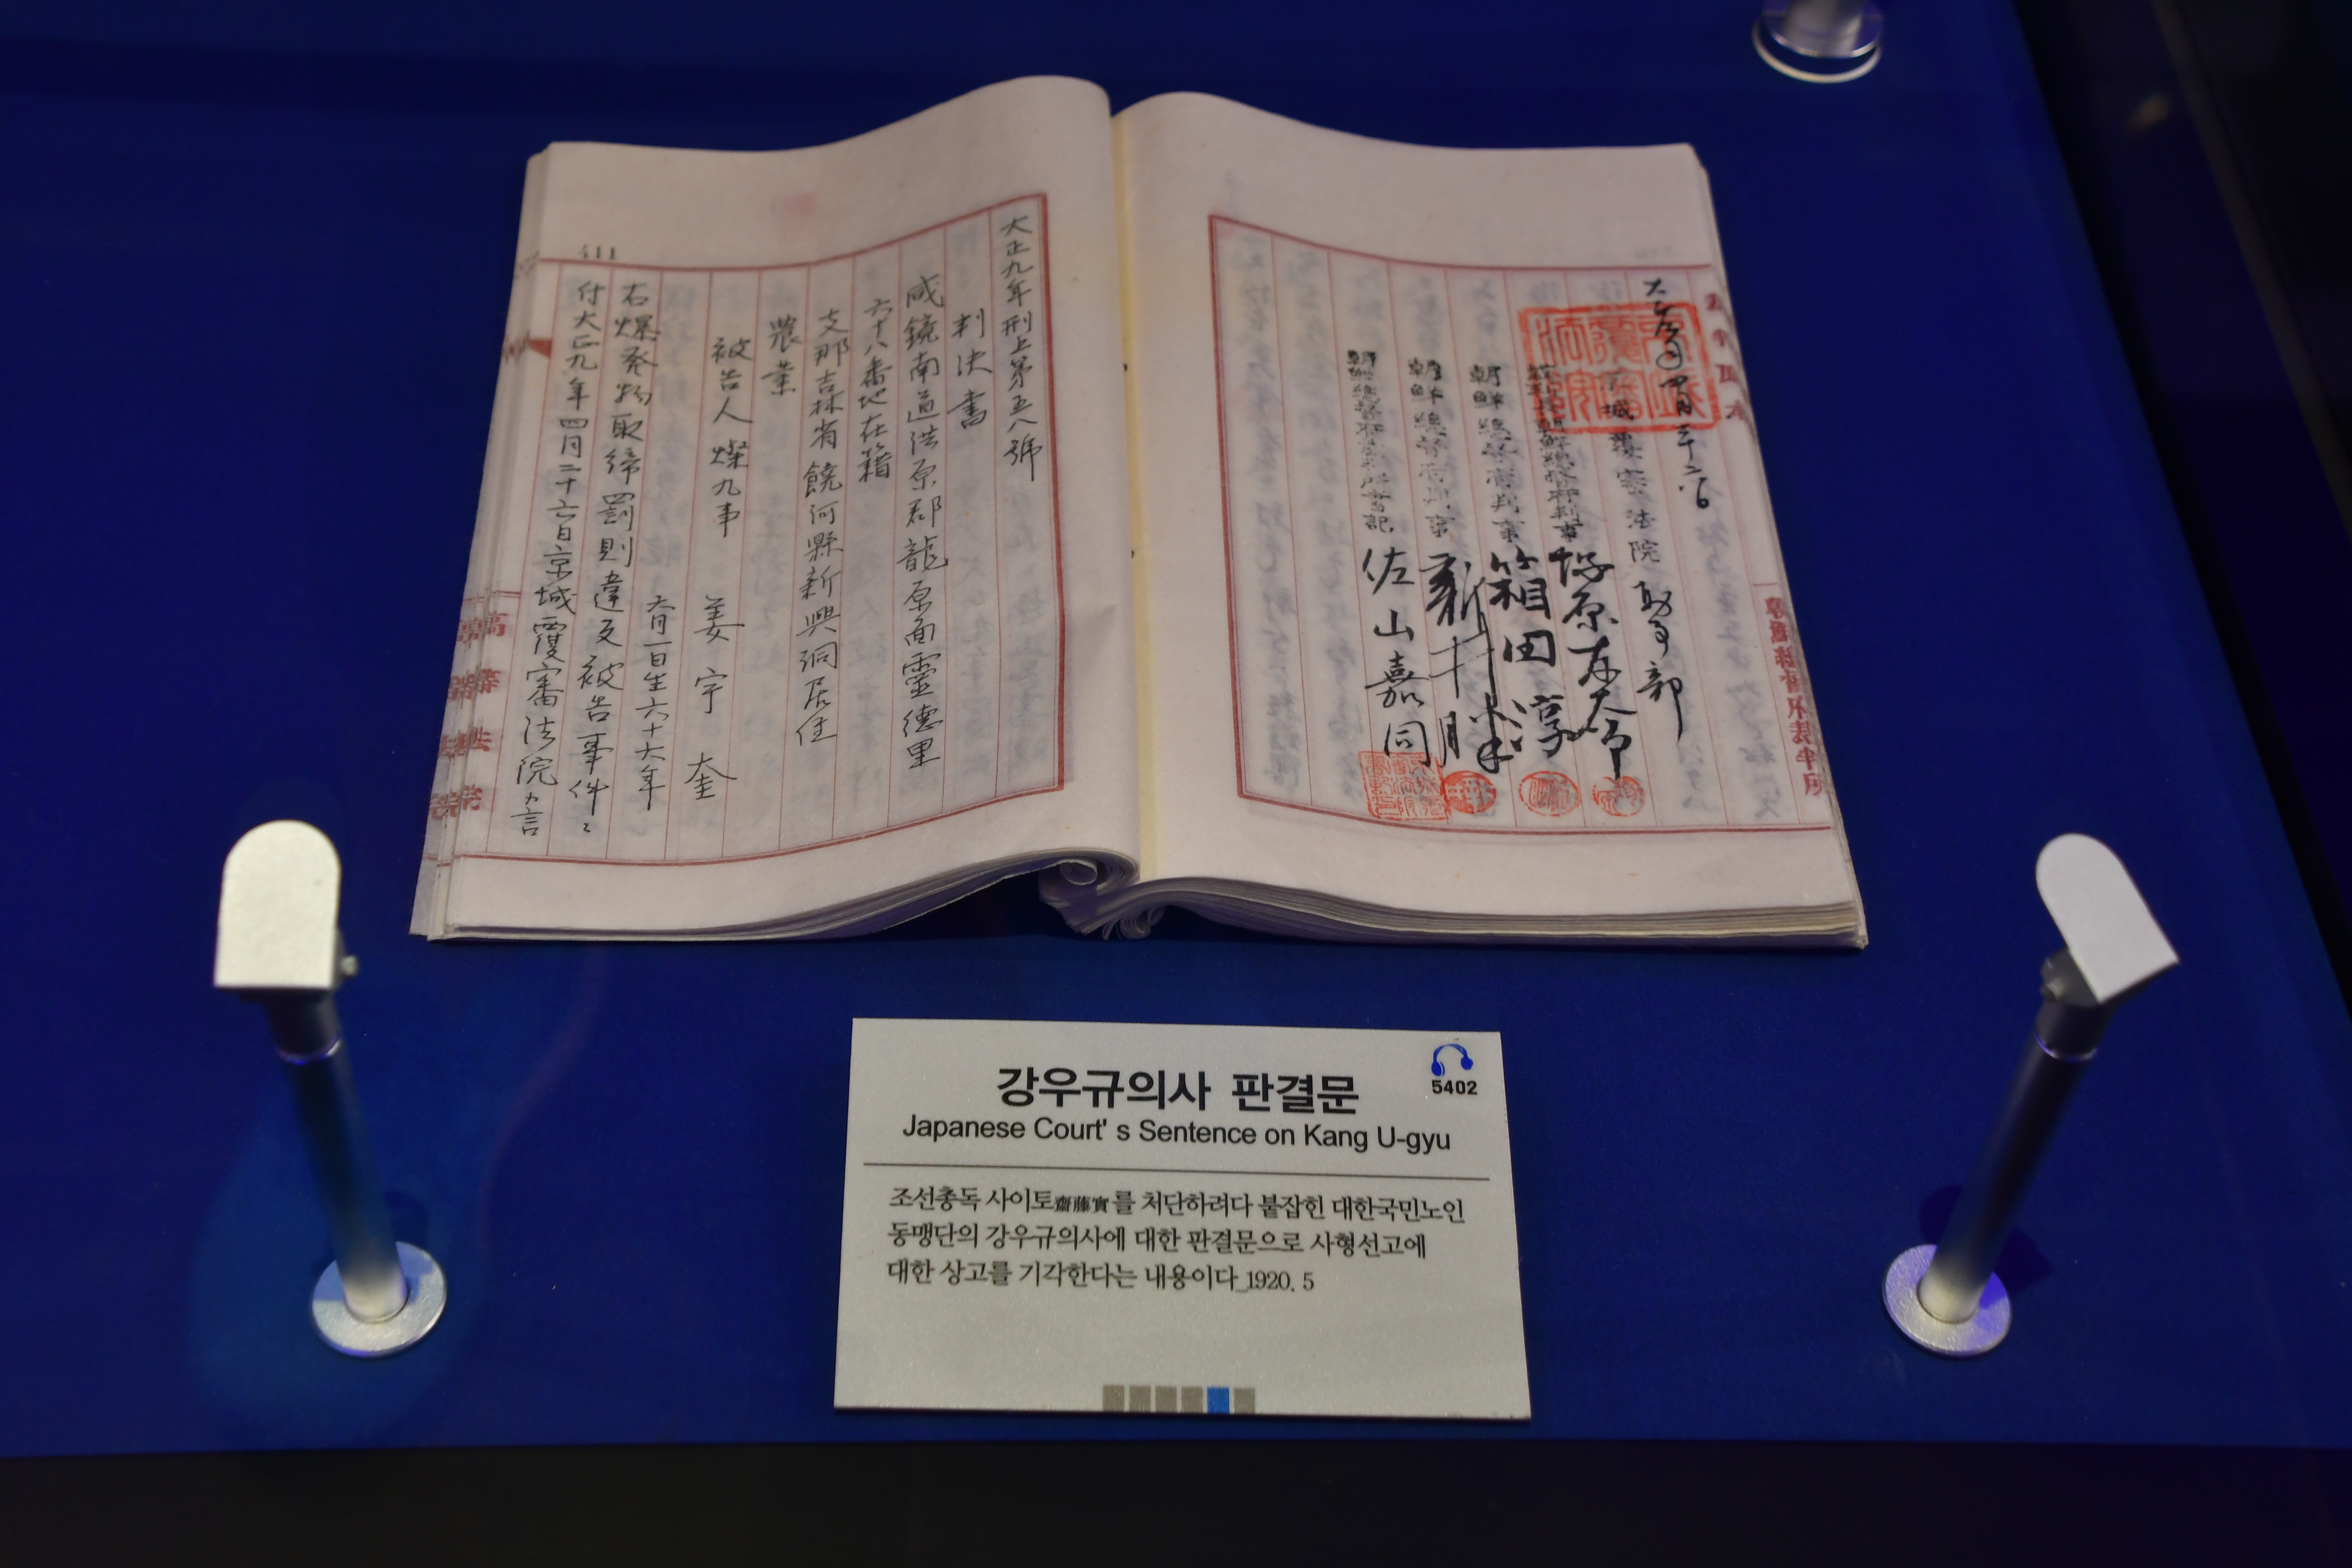 大正九年四月二十六日
京城覆審法院刑事部
朝鮮總督府判事
朝鮮總督府判事 箱田淳
朝鮮總督府判事 新井勝
朝鮮總督府裁判所書記 佐山嘉同
大正九年刑上第五八號
判決書
咸鏡南道洪原郡龍原面靈德里
六十八番地在籍
支那吉林省饒河縣新興洞居住
農業
被告人 燦九事 姜宇奎
六月一日生六十六年
右爆發物取締罰則違反被告事件ニ
付大正九年四月二十六日京城覆審法院カ言
411
高等法院
강우규의사 판결문
5402
Japanese Court' s Sentence on Kang U-gyu
조선총독 사이토齋藤實를 처단하려다 붙잡힌 대한국민노인
동맹단의 강우규의사에 대한 판결문으로 사형선고에
대한 상고를 기각한다는 내용이다_1920. 5